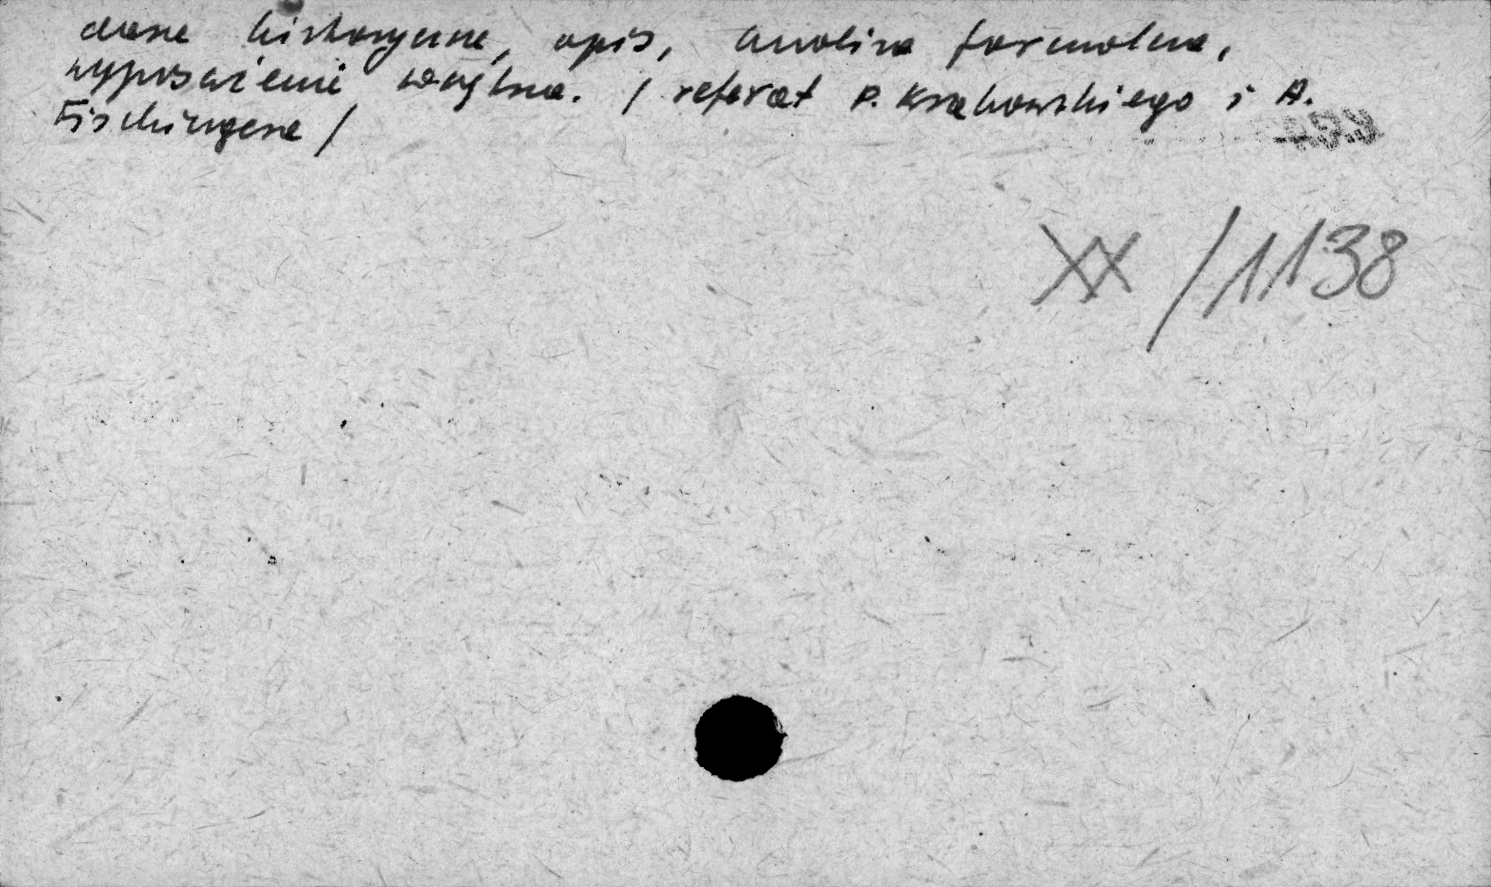 dane historyczne, opis, analiza formalna,
wyposażenie wnętrza. / referat P. Krakowskiego i A.
Fischingera /
XX / 1138